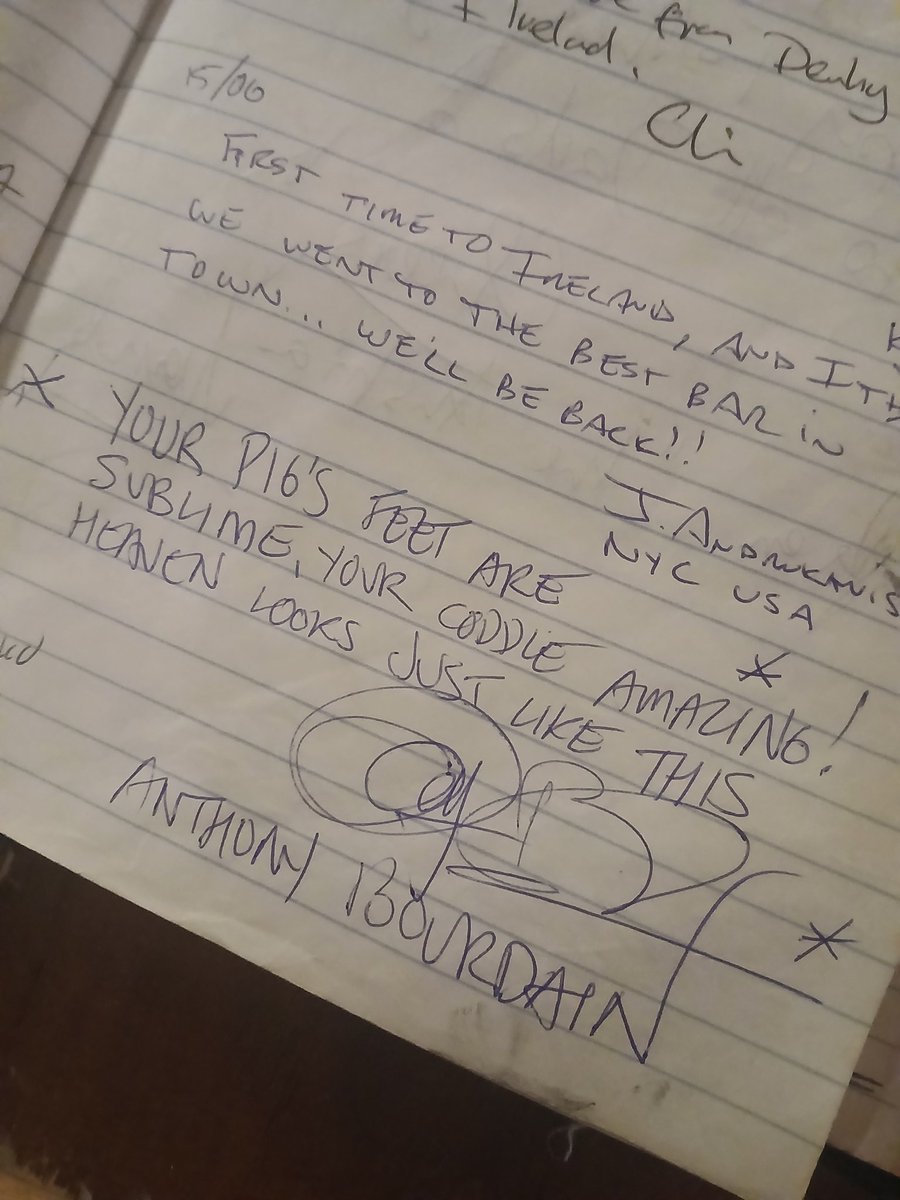 from Denby
+ Ireland.
Cli
5/06
FIRST TIME TO IRELAND, AND I TH
WE WENT TO THE BEST BAR IN
TOWN... WE'LL BE BACK!!
J. ANDRUKANIS
NYC USA
* YOUR PIG'S FEET ARE
SUBLIME, YOUR CODDLE AMAZING!
HEAVEN LOOKS JUST LIKE THIS
*
ANTHONY BOURDAIN
*